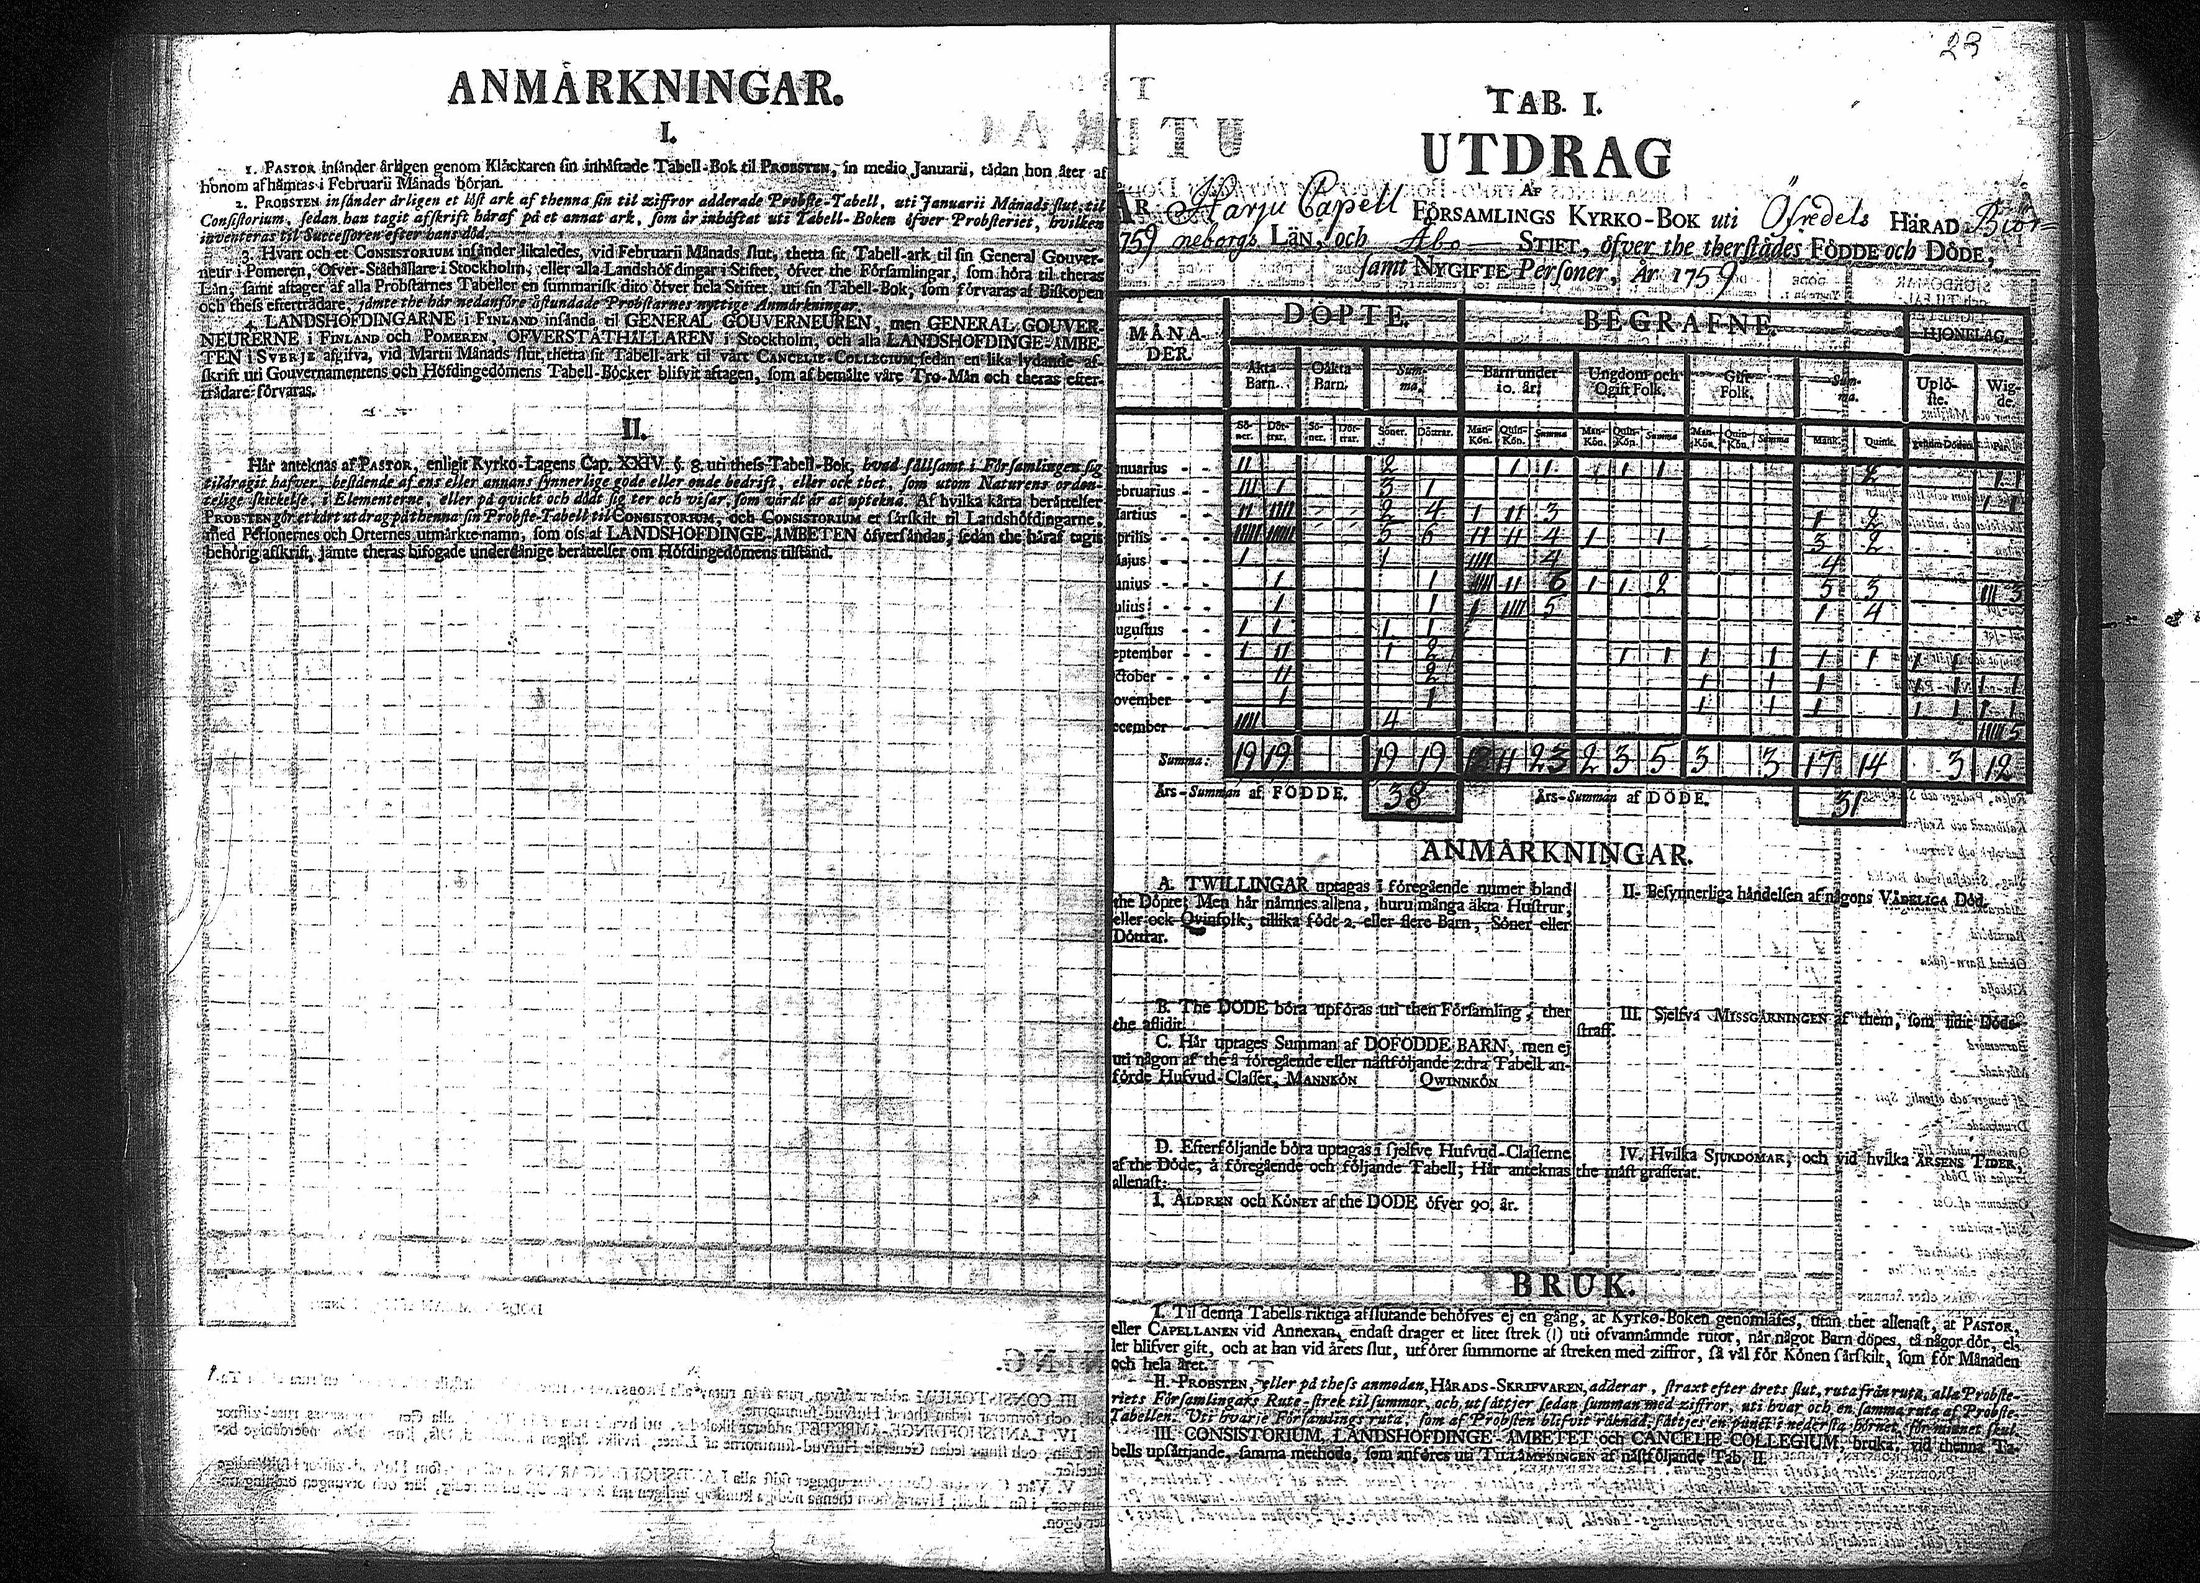 ANMÄRKNINGAR.
I.
1. PASTOR insänder årligen genom Klåckaren sin inhäftade Tabell-Bok til PROBSTEN, in medio Januarii, tådan hon åter af
honom afhämtas i Februarii Månads början.
2. PROBSTEN insänder årligen et löst ark af thenna sin til ziffror adderade Probste-Tabell, uti Januarii Månads slut, til
Consistorium, sedan han tagit afskrift håraf på et annat ark, som är inhäftat uti Tabell-Boken öfver Probsteriet, hvilken
inventeras til Successoren efter hans död.
3. Hvart och et CONSISTORIUM insänder likaledes, vid Februarii Månads slut, thetta sit Tabell-ark til sin General Gouver-
neur i Pomeren, Öfver-Ståthållare i Stockholm, eller alla Landshöfdingar i Stiftet, öfver the Församlingar, som höra til theras
Län, samt aftager af alla Probstarnes Tabeller en summarisk dito öfver hela Stiftet, uti sin Tabell-Bok, som förvaras af Biskopen
och thess efterträdare, jämte the här nedanföre åstundade Probstarnes nyttige Anmärkningar.
4. LANDSHÖFDINGARNE i FINLAND insända til GENERAL GOUVERNEUREN, men GENERAL GOUVER-
NEURERNE i FINLAND och POMEREN, ÖFVERSTÅTHÅLLAREN i Stockholm, och alla LANDSHÖFDINGE-ÄMBE-
TEN i SVERJE afgifva, vid Martii Månads slut, thetta sit Tabell-ark til vårt CANCELIE-COLLEGIUM, sedan en lika lydande af-
skrift uti Gouvernamentens och Höfdingedömens Tabell-Böcker blifvit aftagen, som af bemälte våre Tro-Män och theras efter-
trädare förvaras.
II.
Här anteknas af PASTOR, enligit Kyrko-Lagens Cap. XXIV. §. 8. uti thess Tabell-Bok, hvad sällsamt i Församlingen sig
tildragit hafver, bestående af ens eller annans synnerlige gode eller onde bedrift, eller ock thet, som utom Naturens orden-
telige skickelse, i Elementerne, eller på qvickt och dödt sig ter och visar, som värdt är at uptekna. Af hvilka korta berättelser
PROBSTEN gör et kort utdrag på thenna sin Probste-Tabell til CONSISTORIUM, och CONSISTORIUM et särskilt til Landshöfdingarne,
med Personernes och Orternes utmärkte namn, som oss af LANDSHÖFDINGE-ÄMBETEN öfversändas, sedan the håraf tagit
behörig afskrift, jämte theras bifogade underdånige berättelser om Höfdingedömens tilstånd.
23
TAB. I.
UTDRAG
AF
ÅR Harju Capell FÖRSAMLINGS KYRKO-BOK uti Öfredels HÄRAD Biör-
1759 neborgs LÄN, och Åbo STIFT, öfver the therstädes FÖDDE och DÖDE,
samt NYGIFTE Personer, År 1759
MÅNA- DÖPTE. BEGRAFNE. HJONELAG.
DER. Äkta Barn. Oäkta Barn. Sum-ma. Barn under 10. år. Ungdom och Ogift Folk. Gift Folk. Sum-ma. Uplö-ste. Wig-de.
Sö-ner. Döt-trar. Sö-ner. Döt-trar. Söner. Döttrar. Man-Kön. Quin-Kön. Summa Man-Kön. Quin-Kön. Summa Man-Kön. Quin-Kön. Summa Mank. Quink. genom Döden.
nuarius - - II 2 1 1 1 1 2 1 1
ebruarius - - III 1 3 1 1 1
artius - - II IIII 2 4 1 II 3 1 2
prilis - - IIIII IIIIII 5 6 II II 4 1 1 3 2
Majus - - 1 1 IIII 4 4
unius - - 1 1 IIII II 6 1 1 2 5 3 III 3
ulius - - 1 1 1 IIII 5 1 4
ugustus - - 1 1 1 1
eptember - - 1 II 1 2 1 1 1 1 1 1 1 1
ctober - - - II 2 1 1 1 1 1 1 1
ovember - - 1 1 1 1 1 1 1 1 1
ecember - - IIII 4 IIIII 5
Summa: 19 19 19 19 12 11 23 2 3 5 3 3 17 14 3 12
Års-Summan af FÖDDE. 38 Års-Summan af DÖDE. 31
ANMÄRKNINGAR.
A. TWILLINGAR uptagas i föregående numer bland
the Döpte; Men här nämnes allena, huru många äkta Hustrur,
eller ock Qvinfolk, tillika födt 2. eller flere Barn, Söner eller
Döttrar.
B. The DÖDE böra upföras uti then Församling, ther
the aflidit.
C. Här uptages Summan af DÖFÖDDE BARN, men ej
uti någon af the å föregående eller nästföljande 2:dra Tabell an-
förde Hufvud-Classer, MANNKÖN QWINNKÖN
D. Efterföljande böra uptagas i sjelfve Hufvud-Classerne
af the Döde, å föregående och följande Tabell; Här anteknas
allenast:
I. ÅLDREN och KÖNET af the DÖDE öfver 90. år.
II. Besynnerliga händelsen af någons VÅDELIGA Död.
III. Sjelfva MISSGÄRNINGEN af them, som lidit Döds-
straff.
IV. Hvilka SJUKDOMAR, och vid hvilka ÅRSENS TIDER,
the mäst grasserat.
BRUK.
I. Til denna Tabells riktiga afslutande behöfves ej en gång, at Kyrko-Boken genomläses, utan thet allenast, at PASTOR,
eller CAPELLANEN vid Annexan, endast drager et litet strek (I) uti ofvannämnde rutor, när något Barn döpes, tå någor dör, el-
ler blifver gift, och at han vid årets slut, utförer summorne af streken med ziffror, så väl för Könen särskilt, som för Månaden
och hela året.
II. PROBSTEN, eller på thess anmodan, HÄRADS-SKRIFVAREN, adderar, straxt efter årets slut, ruta från ruta, alla Probste-
riets Församlingars Rute-strek til summor, och utsättjer sedan summan med ziffror, uti hvar och en samma ruta af Probste-
Tabellen. Uti hvarje Församlings ruta, som af Probsten blifvit räknad, sättjes en punct i nedersta hörnet, för minnet skul.
III. CONSISTORIUM, LANDSHÖFDINGE-ÄMBETET och CANCELIE COLLEGIUM, bruka, vid thenna Ta-
bells upsättjande, samma methode, som anföres uti TILLÄMPNINGEN af nästföljande Tab. II.